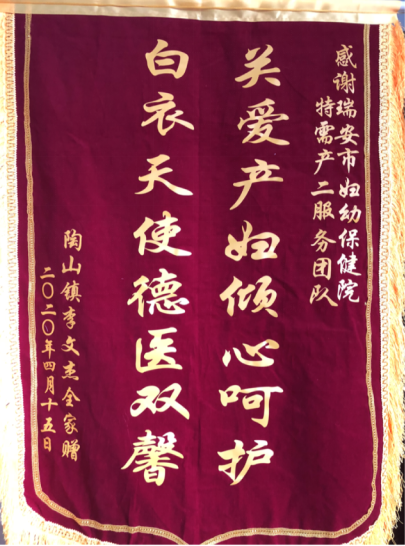 感谢瑞安市妇幼保健院
特需产二服务团队
关爱产妇倾心呵护
白衣天使德医双馨
陶山镇李文杰全家赠
二〇二〇年四月十五日